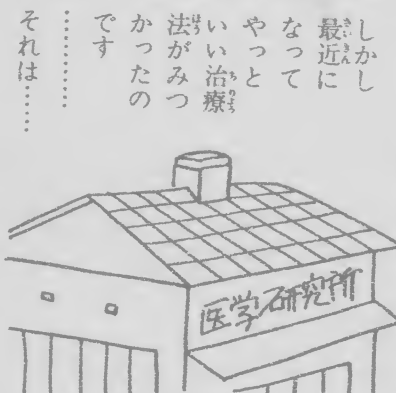 しかし
最近に
なって
やっと
いい治療
法がみつ
かったの
です
…………
それは……
医学研究所